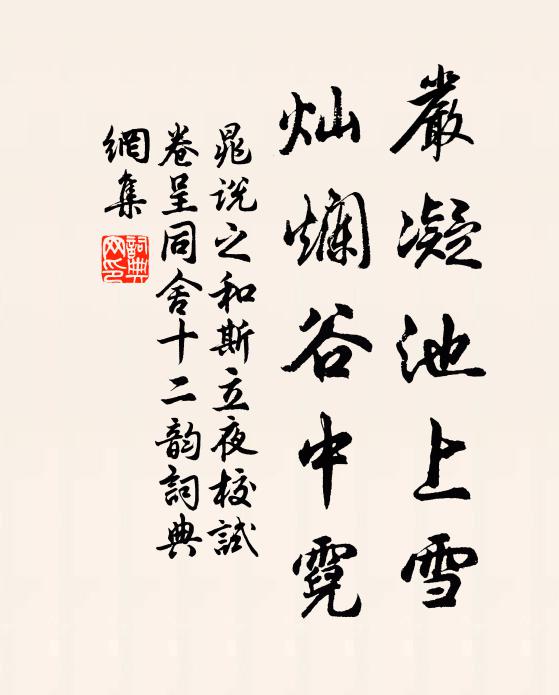 嚴凝池上雪
灿斓谷中霓
晁说之和斯立夜校試
卷呈同舍十二韵詞典
網集
詞典
网印